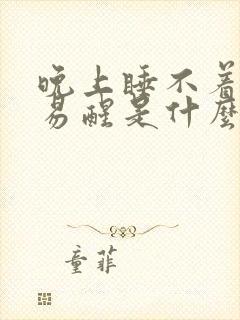 晚上睡不着
易醒是什麼
童菲